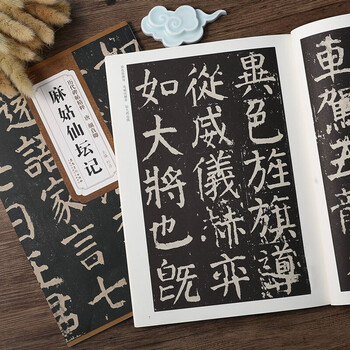 历代碑帖精粹 唐 颜真卿
麻姑仙坛记
語家言七
車駕五
異色旌旗導
從威儀赫弈
如大將也既